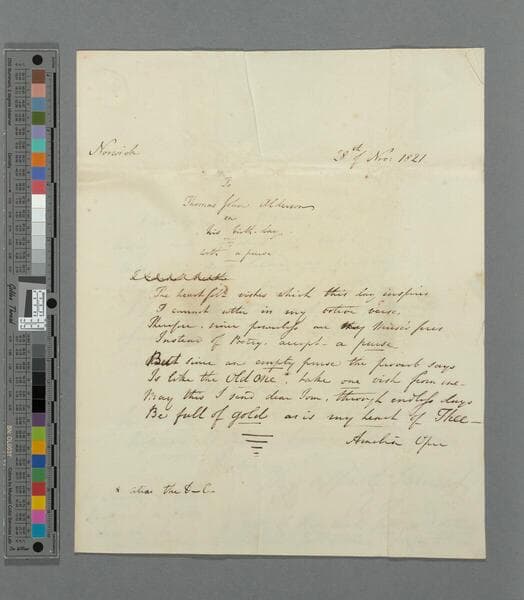 Norwich 28th of Nov: 1821
To
Thomas John Alderson
on
his birth-day
with a purse
The heartfelt wishes which this day inspires
I cannot utter in my votive verse.
Therefore, since are Muse's fires
Instead of Poetry, accept a purse
But since an empty purse the proverb says
Is like the Old One*, take one wish from me
May this I send dear Tom, through endless days
Be full of gold as is my heart of Thee —
Amelia Opie
* alias the D—l